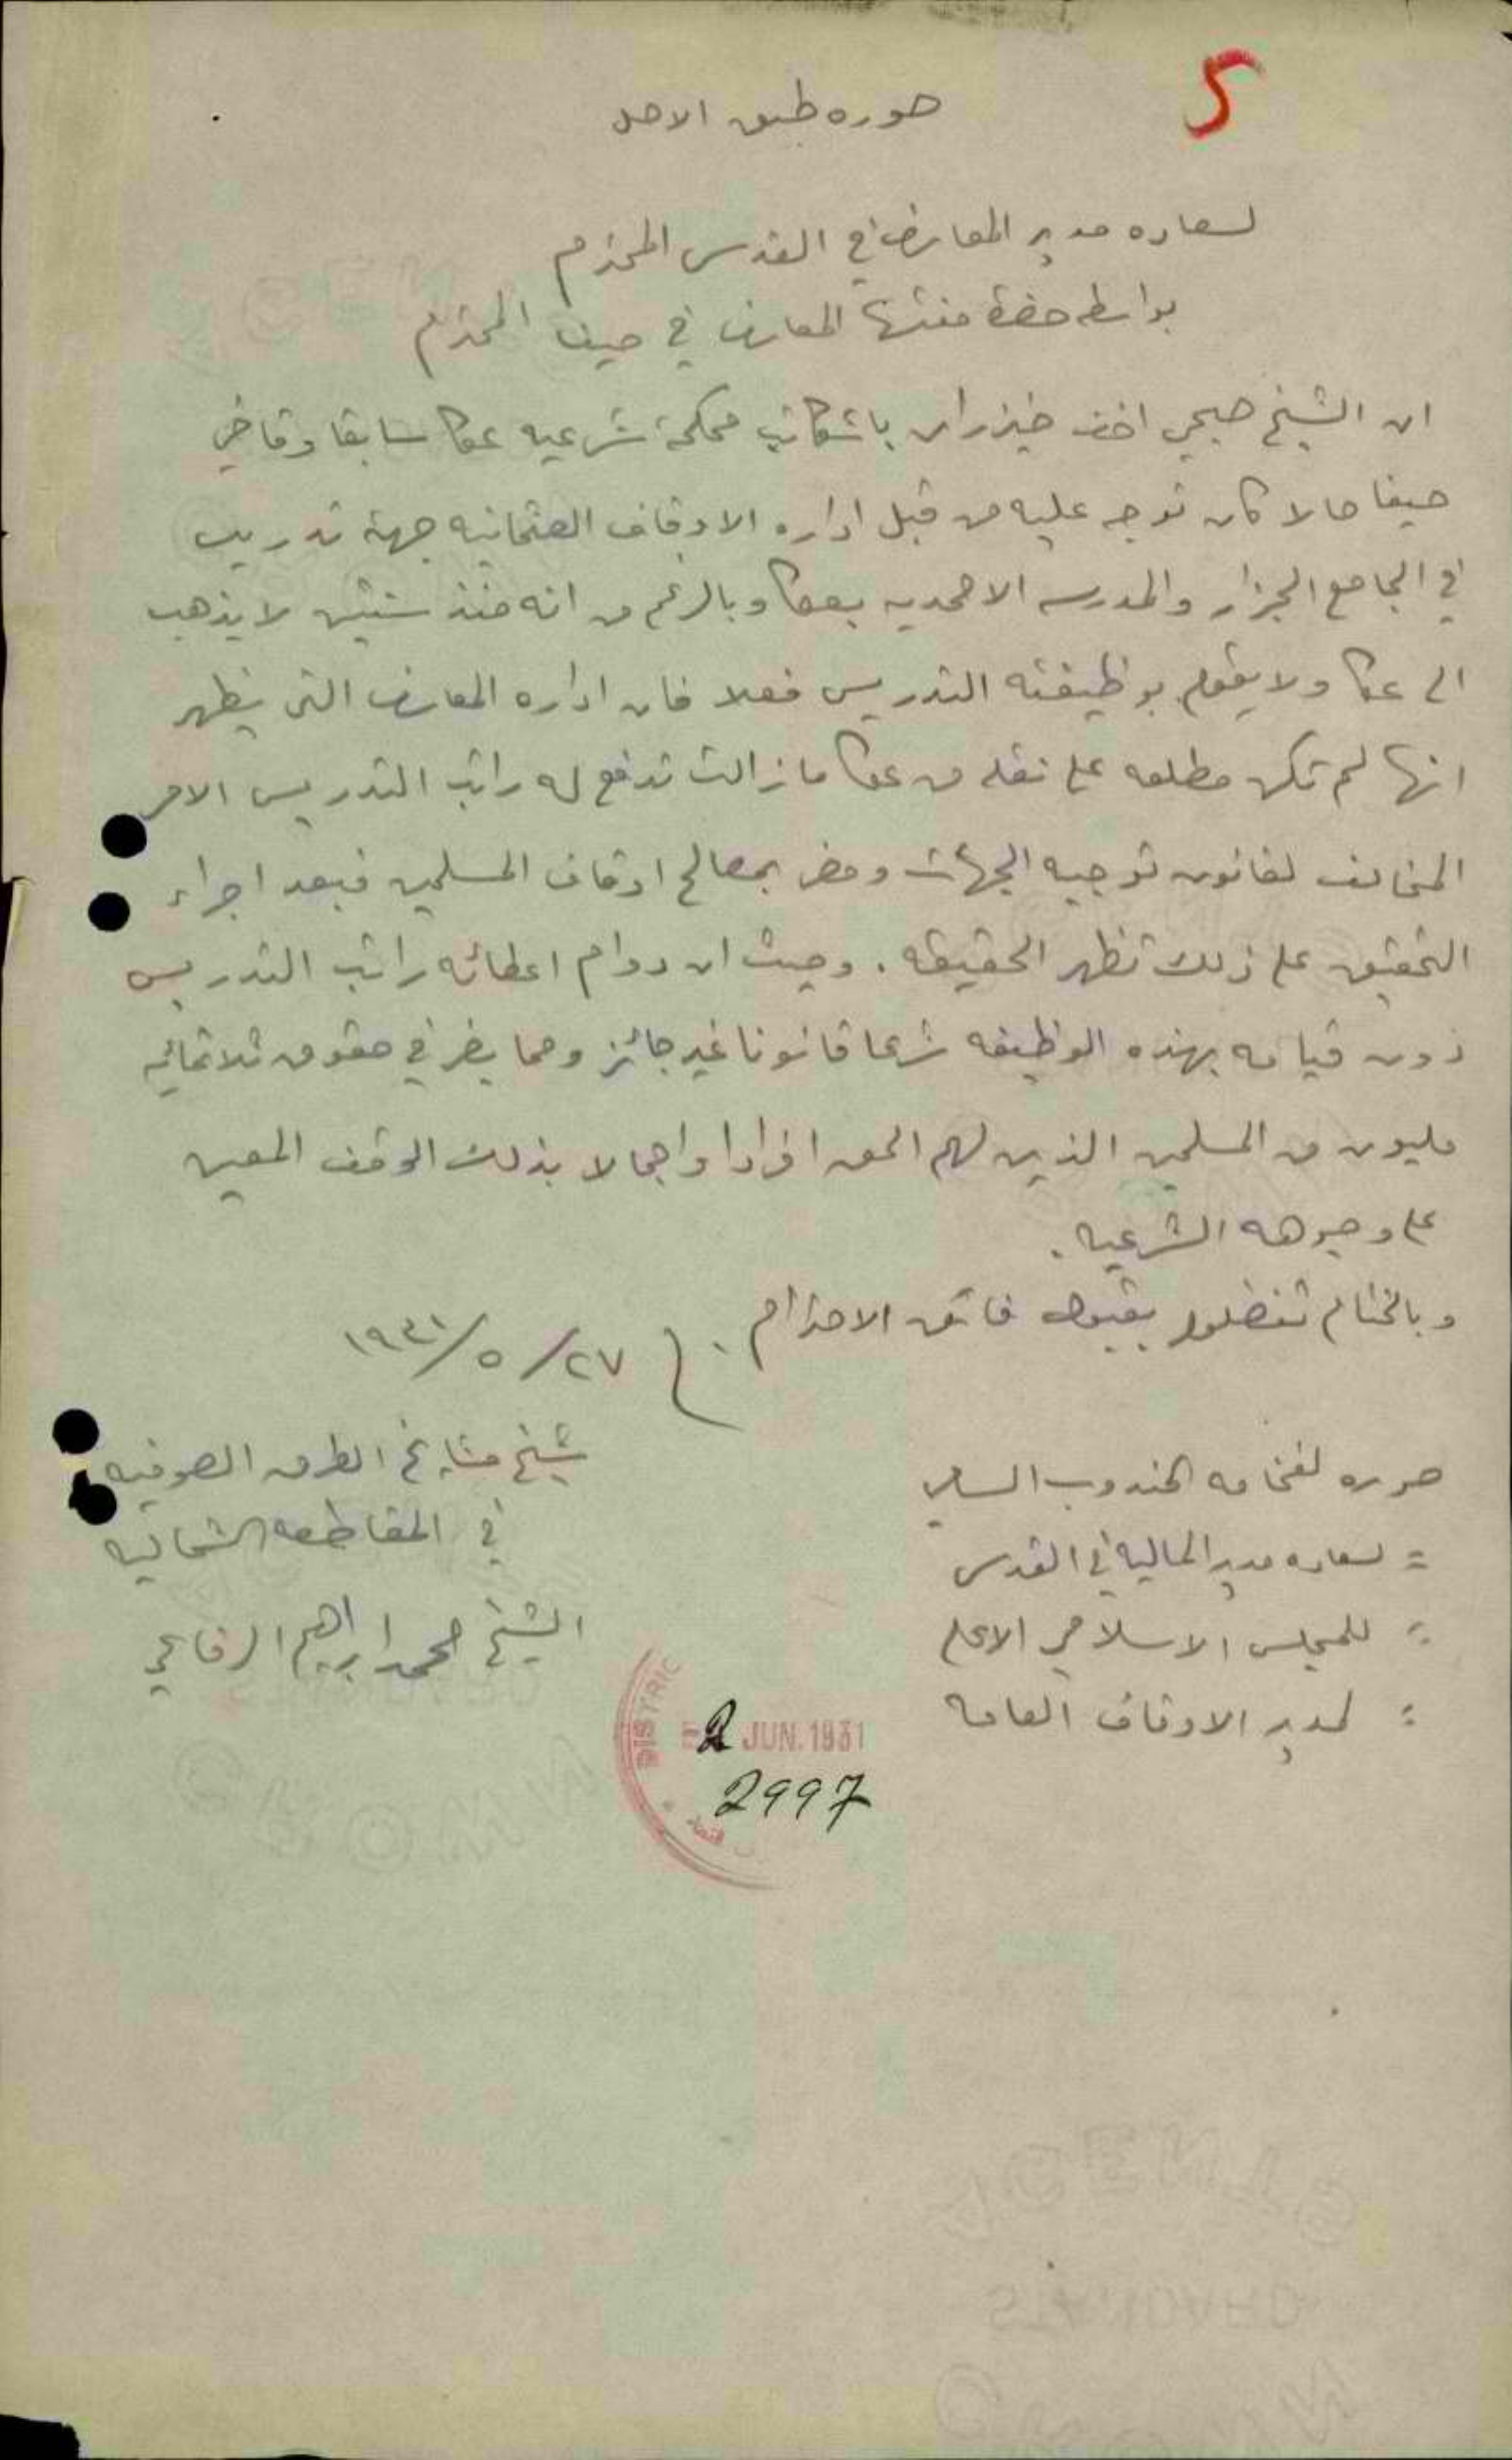 5
صوره طبق الاصل
لسعاده مدير المعارف في القدس المحترم
بواسطه حضرة مفتش المعارف في حيفا المحترم
ان الشيخ صبحي افندي خيزران باشكاتب محكمة شرعيه عكا سابقا وقاضي
حيفا حالا كان توجه عليه من قبل اداره الاوقاف العثمانيه جهة تدريس
في الجامع الجزار والمدرسه الاحمديه بعكا وبالرغم من انه منذ سنتين لا يذهب
الى عكا ولا يقوم بوظيفته التدريس فعلا فان اداره المعارف التي يظهر
انها لم تكن مطلعه على نقله من عكا ما زالت تدفع له راتب التدريس الامر
المخالف لقانون توجيه الجهات ومضر بمصالح اوقاف المسلمين فبعد اجراء
التحقيق على ذلك تظهر الحقيقه . وحيث ان دوام اعطائه راتب التدريس
دون قيامه بهذه الوظيفه شرعا قانونا غير جائز ومما يضر في حقوق ثلاثمائه
مليون من المسلمين الذين لهم الحق افرادا واجمالا بذلك الوقف المعين
على وجوهه الشرعيه .
وبالختام تفضلوا بقبول فائق الاحترام .
١٩٣١/٥/٢٧
شيخ مشايخ الطرق الصوفيه
في المقاطعه الشماليه
الشيخ محمد ابراهيم الرفاعي
صوره لفخامه المندوب السامي
= لسعاده مدير الماليه في القدس
= للمجلس الاسلامي الاعلى
= لمدير الاوقاف العامه
DISTRIC
2 JUN. 1931
2997